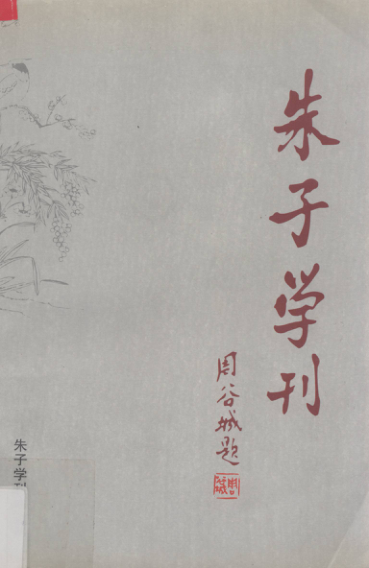 朱子学刊
周谷城题
朱子学刊